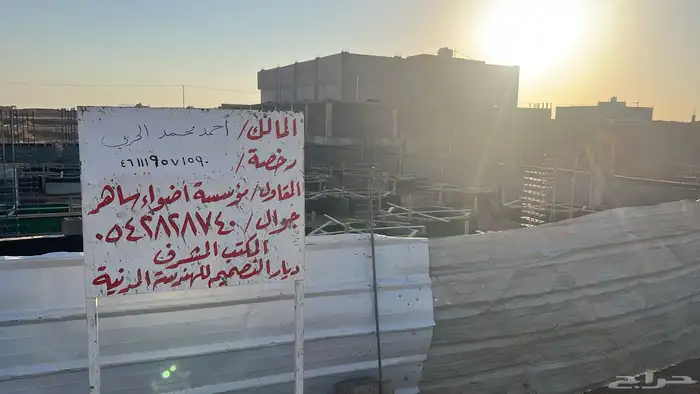 المالك/ أحمد محمد الحربي
رخصة/ ٤٦١١١٩٥٧١٥٩٠
المقاول/ مؤسسة اضواء ساهر
جوال/ ٠٥٤٢٨٢٨٧٤٠
المكتب المشرف
ديار التصميم للهندسة المدنية
حراج